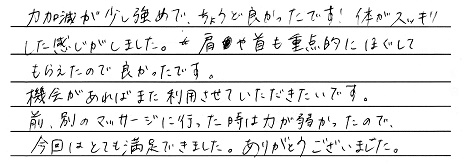 力加減が少し強めで、ちょうど良かったです! 体がスッキリ
した感じがしました。* 肩や首も重点的にほぐして
もらえたので良かったです。
機会があればまた利用させていただきたいです。
前、別のマッサージに行った時は力が弱かったので、
今回はとても満足できました。ありがとうございました。